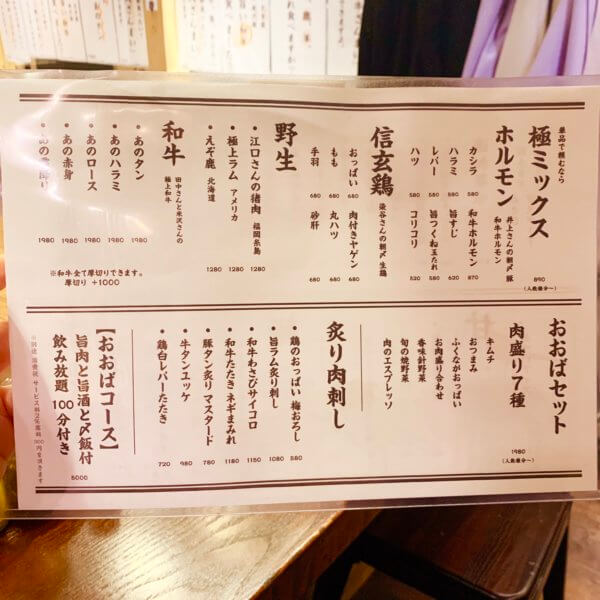 単品で頼むなら
極ミックス
890
(人数様分〜)
ホルモン
井上さんの朝〆豚
和牛ホルモン
カシラ 580
ハラミ 580
レバー 580
ハツ 580
和牛ホルモン 870
旨すじ 620
旨つくね玉たれ 580
コリコリ 520
信玄鶏
染谷さんの朝〆生鶏
おっぱい 680
もも 680
手羽 680
肉付きヤゲン 680
丸ハツ 680
砂肝 680
野生
・江口さんの猪肉 福岡糸島 1280
・極上ラム アメリカ 1280
・えぞ鹿 北海道 1280
和牛
田中さんと米沢さんの
極上和牛
・あのタン 1980
・あのハラミ 1980
・あのロース 1980
・あの赤身 1980
1980
※和牛全て厚切りできます。
厚切り +1000
おおばセット
肉盛り7種
1980
(人数様分〜)
キムチ
おつまみ
ふくながおっぱい
お肉盛り合わせ
香味針野菜
旬の焼野菜
肉のエスプレッソ
炙り肉刺し
・鶏のおっぱい 梅おろし 580
・旨ラム炙り刺し 1080
・和牛わさびサイコロ 1150
・和牛たたき ネギまみれ 1180
・豚タン炙り マスタード 780
・牛タンユッケ 980
・鶏白レバーたたき 720
【おおばコース】
旨肉と旨酒と〆飯付
飲み放題 100分付き
5000